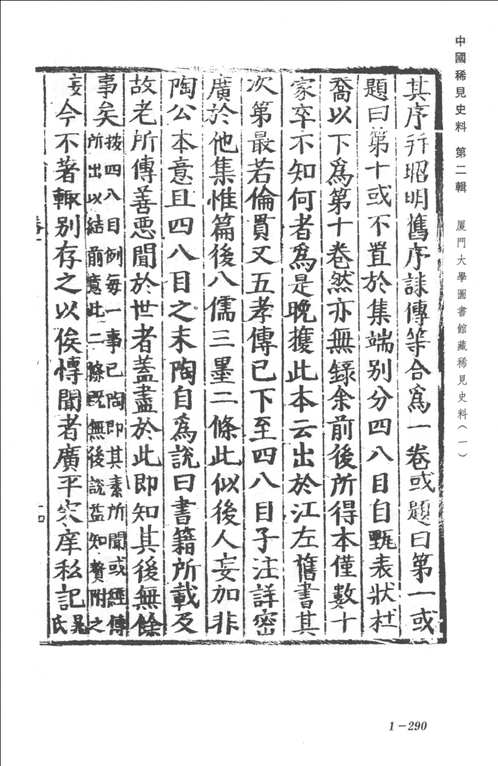 中國稀見史料 第二輯 厦門大學圖書館藏稀見史料(一)
其序并昭明舊序誄傳等合爲一卷或題曰第一或
題曰第十或不置於集端别分四八目自甄表狀杜
喬以下爲第十卷然亦無録余前後所得本僅數十
家卒不知何者爲是晚攓此本云出於江左舊書其
次第最若倫貫又五孝傳已下至四八目子注詳密
廣於他集惟篇後八儒三墨二條此似後人妄加非
陶公本意且四八目之末陶自爲說曰書籍所載及
故老所傳善惡聞於世者蓋盡於此即知其後無餘
事矣按四八目例每一事已陶即其素所聞或經傳
所出以結前意此二條既無後說益知贅附之
妄今不著輒别存之以俟博聞者廣平宋庠私記晁
氏
1-290